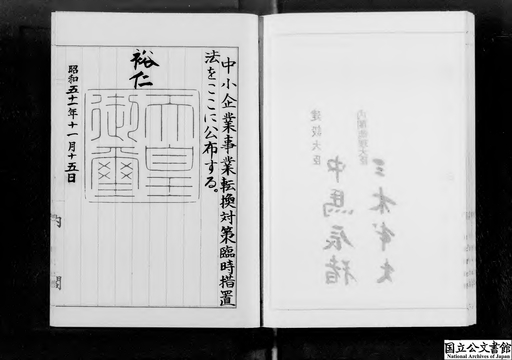 中小企業事業転換対策臨時措置
法をここに公布する。
裕仁
天皇
御璽
昭和五十一年十一月十五日
内閣
内閣総理大臣
三木武夫
建設大臣
中馬辰猪
国立公文書館
National Archives of Japan